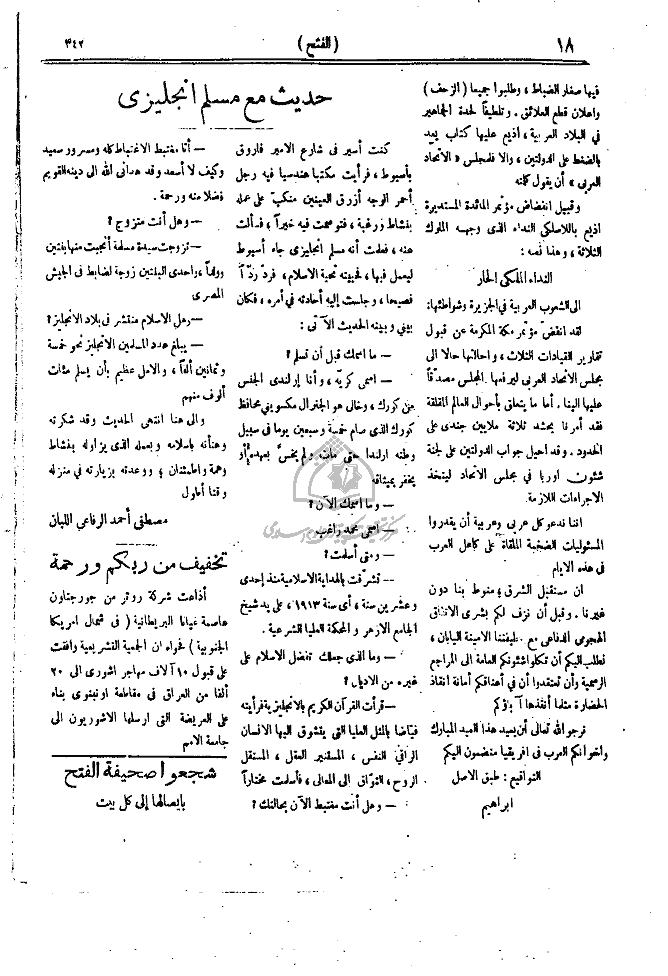 ١٨
(الفتح)
٣٤٢
فيها صغار الضباط ، وطلبوا جميعا (الزحف)
واعلان قطع العلائق . وتلطيفاً لحدة الجماهير
في البلاد العربية ، اذيع عليها كتاب يعد
بالضغط على الدولتين ، والا فلمجلس « الاتحاد
العربي » أن يقول كلمته
وقبيل انفضاض مؤتمر المائدة المستديرة
اذيع باللاسلكي النداء الذى وجهه الملوك
الثلاثة ، وهذا نصه :
النداء الملكى الحار
الى الشعوب العربية في الجزيرة وشواطئها:
لقد انفض مؤتمر مكة المكرمة عن قبول
تقارير القيادات الثلاث ، واحالتها حالا الى
مجلس الاتحاد العربى ليرفعها المجلس مصدقاً
عليها الينا . أما ما يتعلق بأحوال العالم المقلقة
فقد أمرنا بحشد ثلاثة ملايين جندى على
الحدود . وقد احيل جواب الدولتين على لجنة
شئون اوربا في مجلس الاتحاد ليتخذ
الاجراءات اللازمة.
اننا ندعو كل عربى وعربية أن يقدروا
المسئوليات الضخمة الملقاة على كاهل العرب
في هذه الايام
ان مستقبل الشرق منوط بنا دون
غيرنا . وقبل أن نزف لكم بشرى الاتفاق
الهجومي الدفاعى مع حليفتنا الامينة اليابان ،
نطلب اليكم أن تكلوا شئونكم العامة الى المراجع
الرسمية وأن تعتقدوا أن في أعناقكم أمانة انقاذ
الحضارة مثلما أنقذها آباؤكم
نرجو الله تعالى أن يسيد هذا العيد المبارك
واخوانكم العرب فى افريقيا منضمون اليكم
التواقيع : طبق الاصل
ابراهيم
حديث مع مسلم انجليزى
كنت أسير فى شارع الامير فاروق
بأسيوط ، فرأيت مكتبا هندسيا فيه رجل
أحمر الوجه أزرق العينين منكب على عمله
بنشاط ورغبة ، فتوسمت فيه خيراً ، فسألت
عنه ، فعلمت أنه مسلم انجليزى جاء أسيوط
ليعمل فيها ، فحييته تحية الاسلام ، فرد رداً
فصيحا ، وجلست إليه أحادثه في أمره ، فكان
بيني وبينه الحديث الآتى :
— ما اسمك قبل أن تسلم ؟
— اسمى كريه ، وأنا إرلندى الجنس
من كورك ، وخال هو الجنرال مكسوينى محافظ
كورك الذى صام خمسة وسبعين يوما في سبيل
وطنه ارلندا حتى مات ولم يخس بعهده أو
يخفر بميثاقه
— وما اسمك الآن ؟
— اسمى محمد راغب
— ومتى أسلمت ؟
— تشرفت بالهداية الاسلامية منذ إحدى
وعشرين سنة ، أى سنة ١٩١٣ ، على يد شيخ
الجامع الازهر و المحكمة العليا الشرعية .
— وما الذى جعلك تفضل الاسلام على
غيره من الاديان ؟
— قرأت القرآن الكريم بالانجليزية فرأيته
فياضا بالمثل العليا التى يتشوق اليها الانسان
الراقى النفس ، المستنير العقل ، المستقل
الروح ، التواق إلى المعالى ، فأسلمت مختاراً
— وهل أنت مغتبط الآن بحالتك ؟
— أنا مغتبط الاغتباط كله ومسرور سعيد
وكيف لا أسعد وقد هدانى الله الى دينه القويم
فضلا منه ورحمة .
— وهل أنت متزوج ؟
— تزوجت سيدة مسلمة أنجبت منها بنتين
وولداً ، واحدى البنتين زوجة لضابط فى الجيش
المصرى
— وهل الاسلام منتشر فى بلاد الانجليز ؟
— يبلغ عدد المسلمين الانجليز نحو خمسة
وثمانين ألفاً ، والامل عظيم بأن يسلم مئات
ألوف منهم
والى هنا انتهى الحديث وقد شكرته
وهنأته باسلامه وبعمله الذى يزاوله بنشاط
وهمة واطمئنان ؛ ووعدته بزيارته في منزله
وقتا أطول
مصطفى أحمد الرفاعى اللبان
تخفيف من ربكم ورحمة
أذاعت شركة روتر من جورجتاون
عاصمة غيانا البريطانية ( فى شمال امريكا
الجنوبية ) فحواه ان الجمعية التشريعية وافقت
على قبول ١٠ آلاف مهاجر اشورى الى ٢٠
ألفا من العراق في مقاطعة اونيتوى بناء
على العريضة التى ارسلها الاشوريون الى
جامعة الامم
شجعوا صحيفة الفتح
بايصالها إلى كل بيت